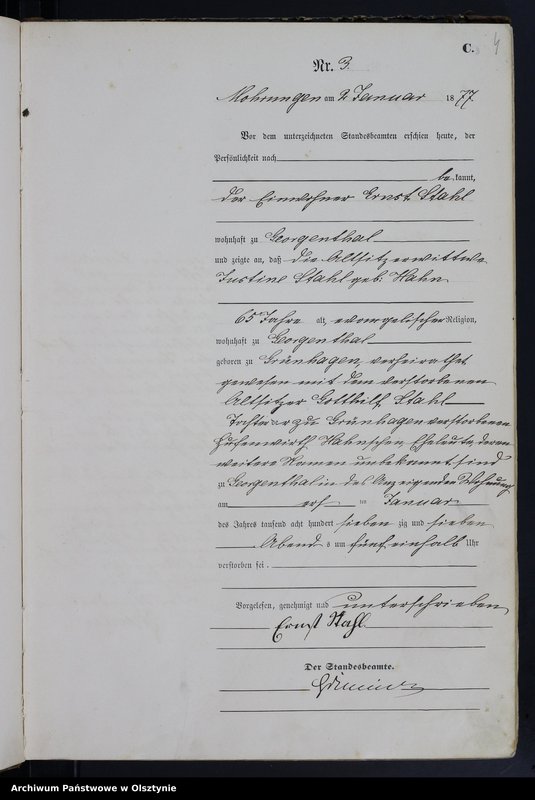 C. 4
Nr. 3.
Mohrungen am 2 Januar 1877.
Vor dem unterzeichneten Standesbeamten erschien heute, der
Persönlichkeit nach
be kannt,
der Einwohner Ernst Stahl
wohnhaft zu Georgenthal
und zeigte an, daß die Altsitzerwittwe
Justine Stahl geb. Hahn
65 Jahre alt, evangelischer Religion,
wohnhaft zu Georgenthal
geboren zu Grünhagen, verheirathet
gewesen mit dem verstorbenen
Altsitzer Gotthilf Stahl
Tochter der zu Grünhagen verstorbenen
Hufenwirth Hahnschen Eheleute, deren
weitere Namen unbekannt sind
zu Georgenthal in des Anzeigenden Wohnung
am ersten Januar
des Jahres tausend acht hundert sieben zig und sieben
Abends um fünf einhalb Uhr
verstorben sei.
Vorgelesen, genehmigt und unterschrieben
Ernst Stahl.
Der Standesbeamte.
Archiwum Państwowe w Olsztynie